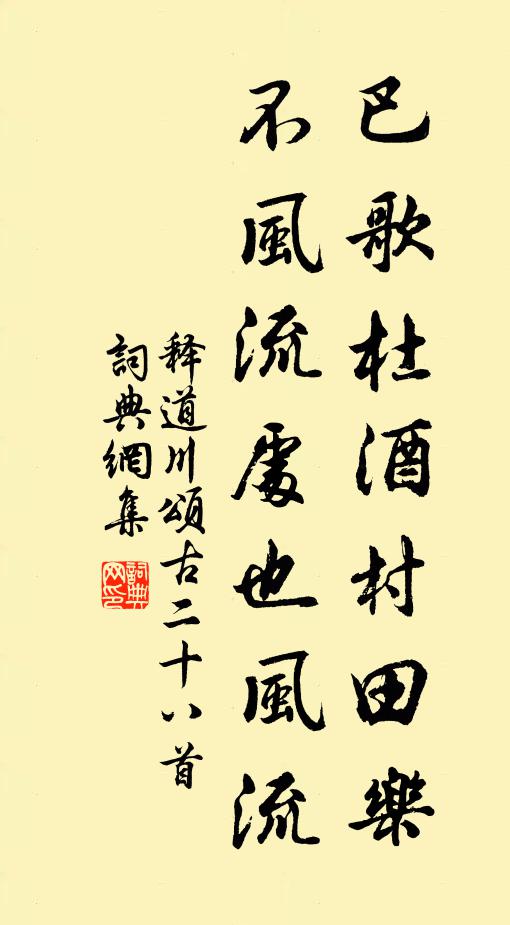 巴歌杜酒村田樂
不風流處也風流
释道川頌古二十八首
詞典網集
詞典网印